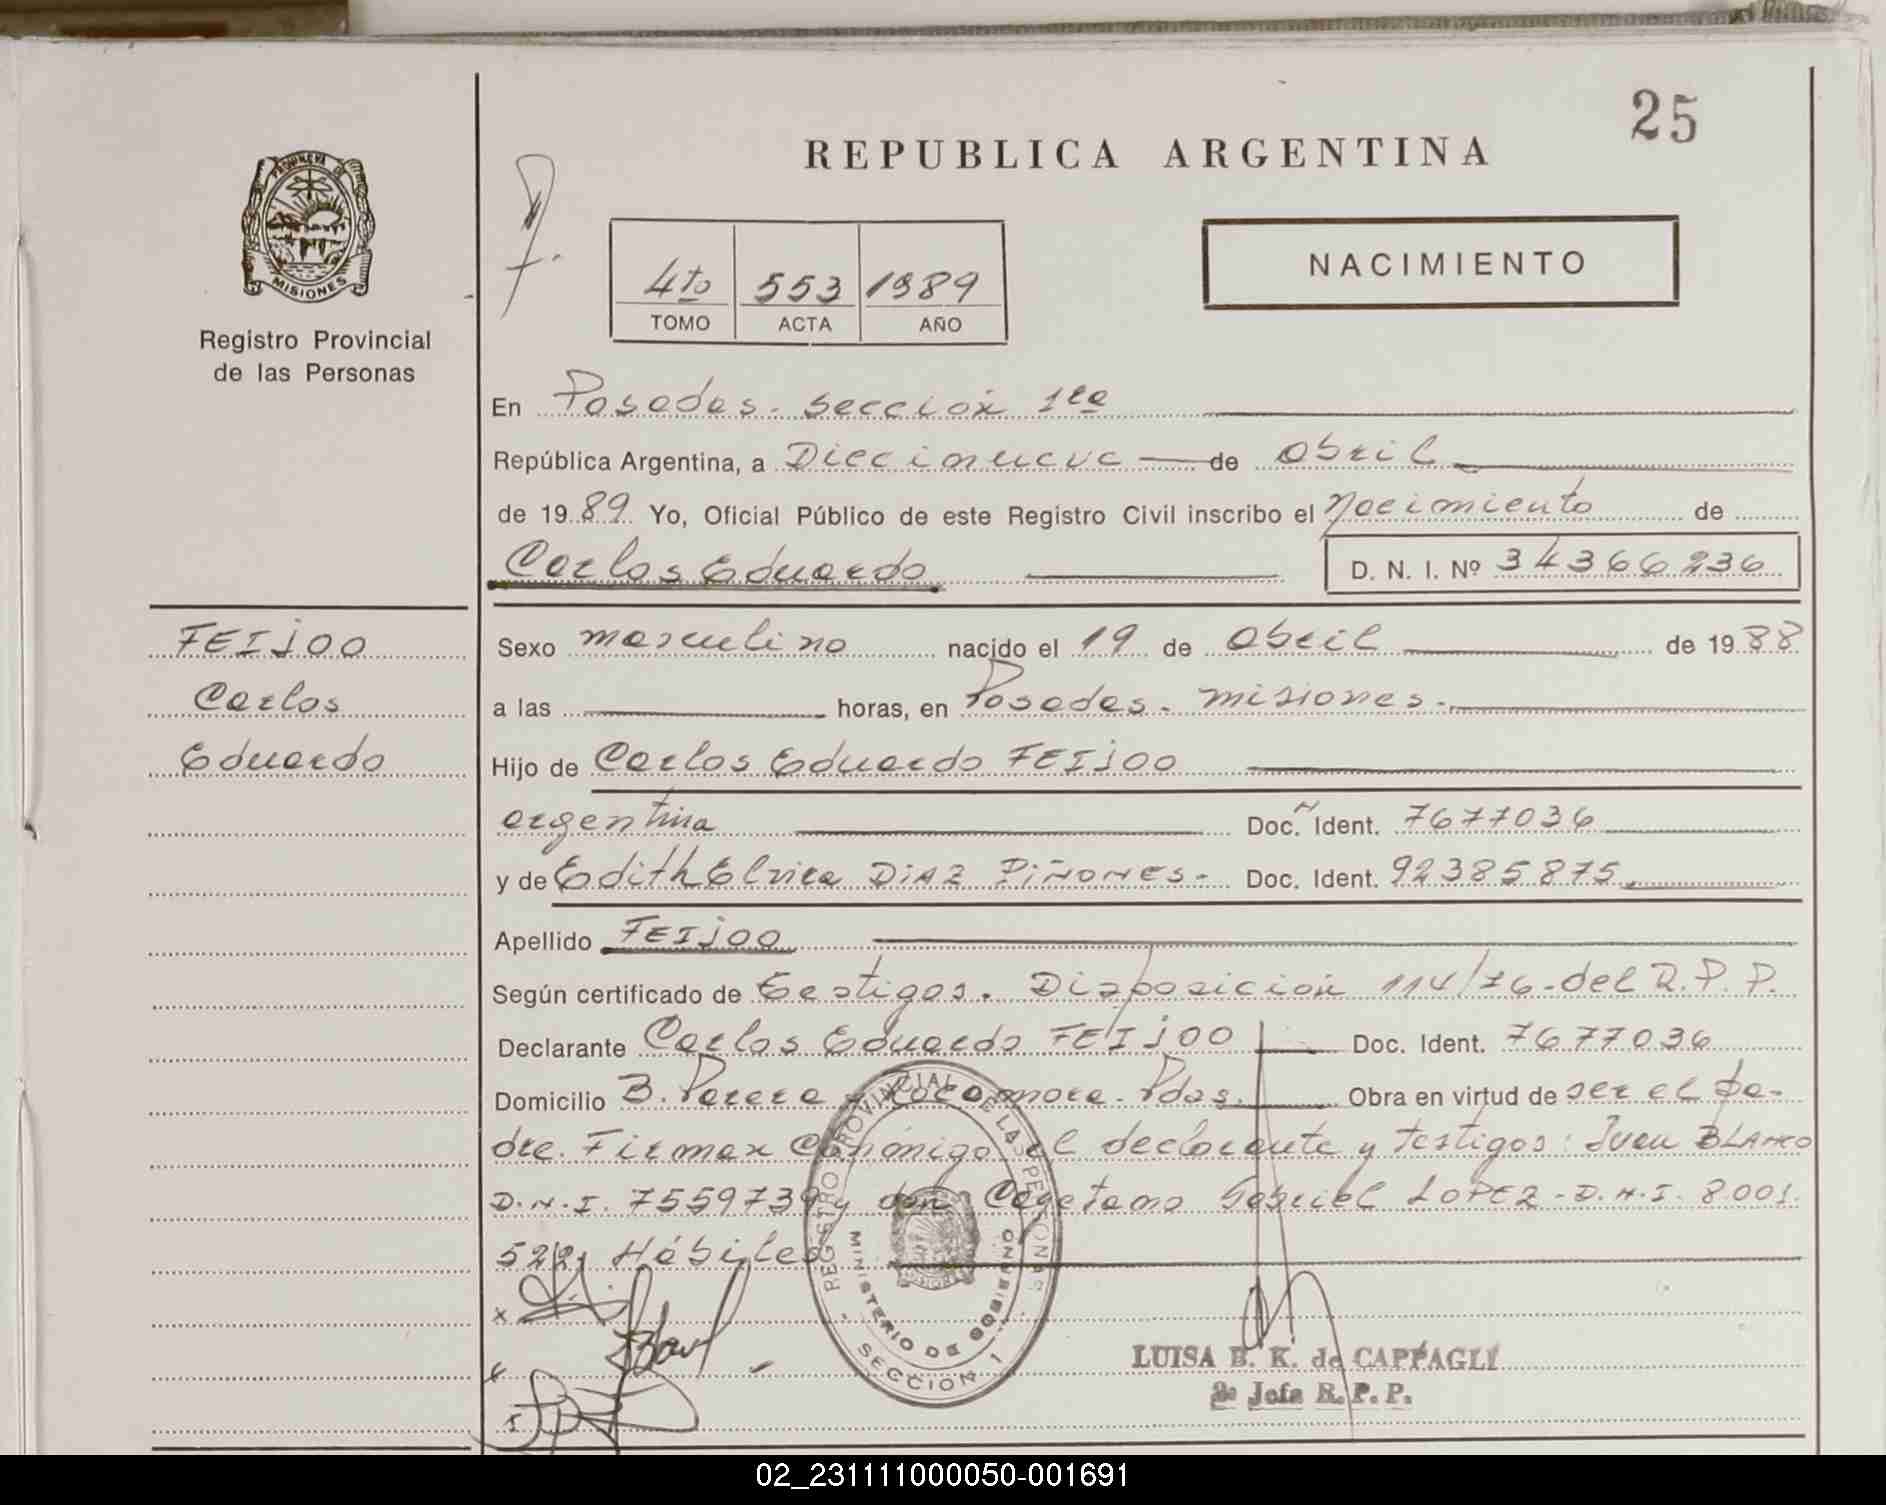 25
REPUBLICA ARGENTINA
PROVINCIA DE
MISIONES
Registro Provincial
de las Personas
4to 553 1989
TOMO ACTA AÑO
NACIMIENTO
En Posadas. Sección 1ra
República Argentina, a Diecinueve de abril
de 1989 Yo, Oficial Público de este Registro Civil inscribo el Nacimiento de
Carlos Eduardo D. N. I. Nº 34366236
FEIJOO
Carlos
Eduardo
Sexo masculino nacido el 19 de abril de 1988
a las horas, en Posadas. misiones.
Hijo de Carlos Eduardo FEIJOO
argentina Doc. Ident. 7677036
y de Edith Elvira DIAZ PIÑONES. Doc. Ident. 92385875
Apellido FEIJOO
Según certificado de testigos. Disposición 114/76 del R.P.P.
Declarante Carlos Eduardo FEIJOO Doc. Ident. 7677036
Domicilio B. Perera y Rocamora. Pdas. Obra en virtud de ser el pa-
dre. Firman Conmigo el declarante y testigos: Juan BLANCO
D.N.I. 7559739 y don Cayetano Gabriel LOPEZ - D.N.I. 8.001.
522, Hábiles
REGISTRO PROVINCIAL DE LAS PERSONAS
MINISTERIO DE GOBIERNO
SECCION 1
LUISA B. K. de CAPPAGLI
2a Jefa R. P. P.
02_231111000050-001691